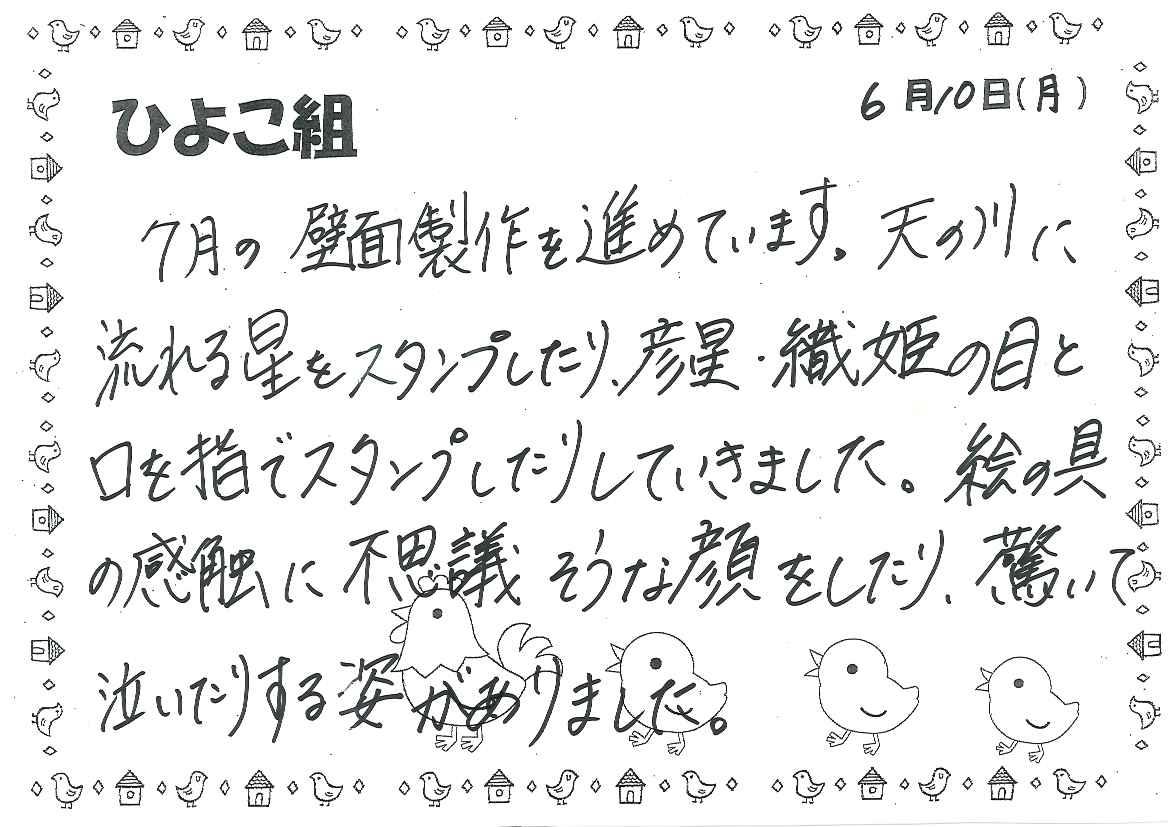 ひよこ組
6月10日(月)
7月の壁面製作を進めています。天の川に
流れる星をスタンプしたり、彦星・織姫の目と
口を指でスタンプしたりしていきました。絵の具
の感触に不思議そうな顔をしたり、驚いて
泣いたりする姿がありました。